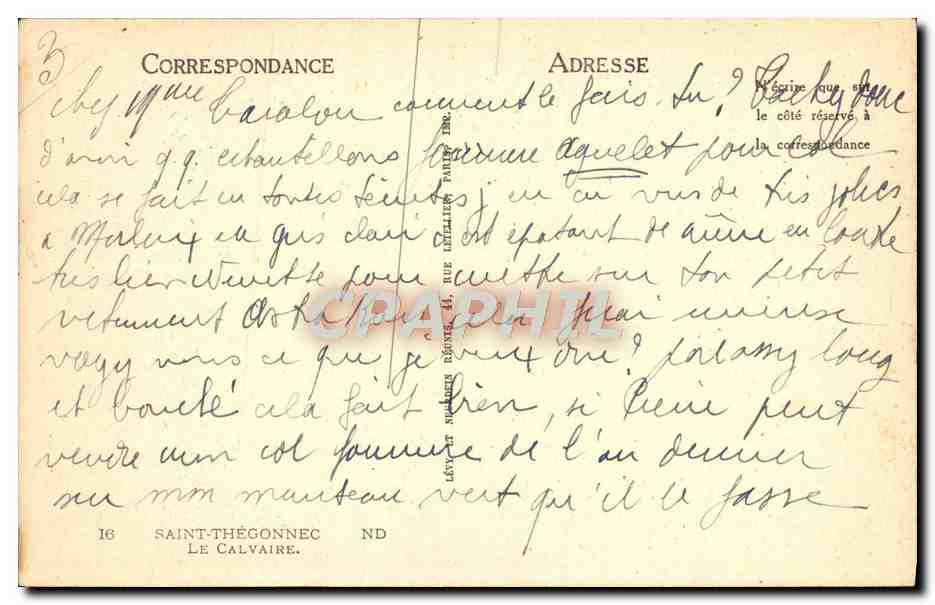 3
CORRESPONDANCE
ADRESSE
N'écrire que sur
le côté réservé à
la correspondance
chez Mme comment le fais-tu? Tache donc
d'avoir q.q. échantillons fourrure agnelet pour col
cela se fait en toutes teintes j'en ai vus de très jolies
à Morlaix en gris clair c'est épatant de même en loutre
très bien pour mettre sur ton petit
vêtement Astrakan cela ferai
voyez vous ce que je veux dire? long
et bouclé cela fait bien, si Pierre peut
vendre mon col fourrure de l'an dernier
sur mon manteau vert qu'il le fasse
LÉVY ET NEURDEIN RÉUNIS, 44, RUE LETELLIER, PARIS, IMP.
CPAPHIL
16 SAINT-THÉGONNEC ND
LE CALVAIRE.